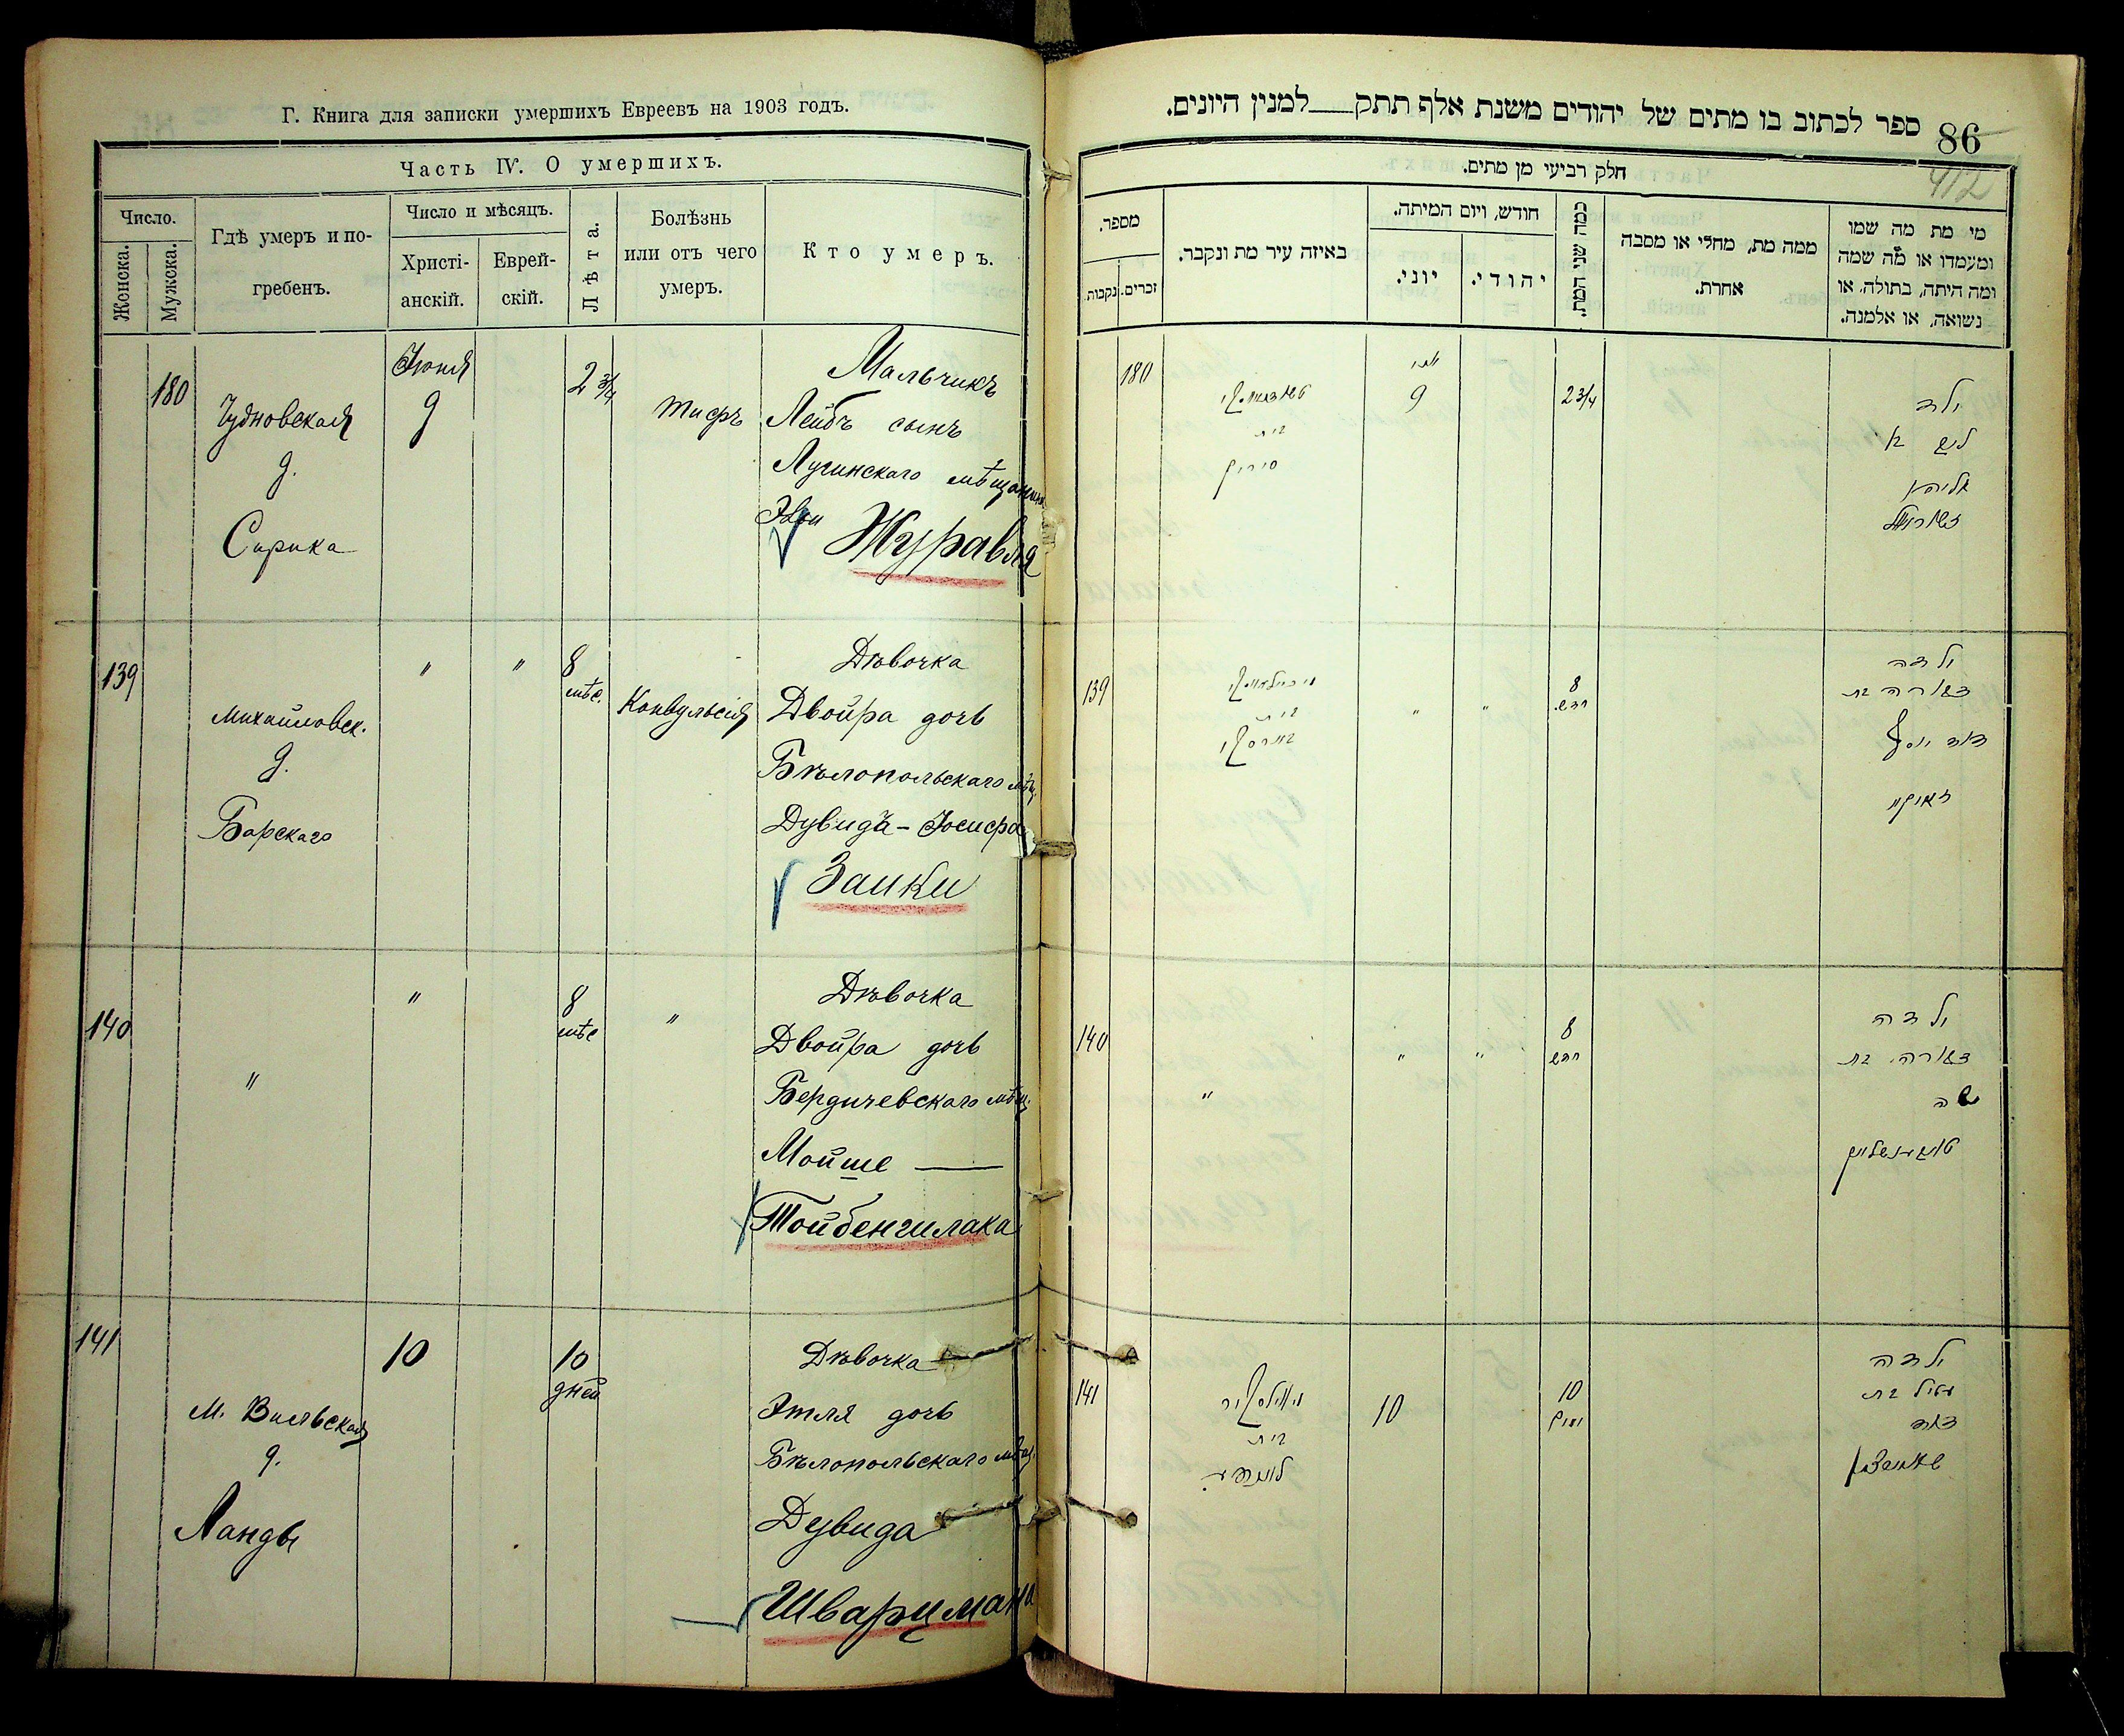 Г. Книга для записки умершихъ Евреевъ на 1903 годъ.
Часть IV. О умершихъ.
Число.
Женска.
Мужска.
Гдѣ умеръ и по-
гребенъ.
Число и мѣсяцъ.
Христі-
анскій.
Еврей-
скій.
Лѣта.
Болѣзнь
или отъ чего
умеръ.
Кто умеръ.
180
Чудновская
д.
Сирика
Іюня
9
2 3/4
тифъ
Мальчикъ
Лейбъ сынъ
Лугинскаго мѣщанина
Журавля
139
Михайловск.
д.
Барскаго
"
"
8
мѣс.
Конвульсія
Дѣвочка
Двойра дочь
Бѣлопольскаго мѣщ.
Дувидъ-Іосифа
Заики
140
"
"
8
мѣс
"
Дѣвочка
Двойра дочь
Бердичевскаго мѣщ.
Мойше —
Тойбенгилака
141
М. Вильская
д.
Ланды
10
10
дней
Дѣвочка
Этля дочь
Бѣлопольскаго мѣщ.
Дувида
Шварцмана
ספר לכתוב בו מתים של יהודים משנת אלף תתק—למנין היונים.
86
412
חלק רביעי מן מתים.
מספר.
נקבות.
זכרים.
באיזה עיר מת ונקבר.
חודש, ויום המיתה.
יוני.
יהודי.
כמה שני המת.
ממה מת, מחלי או מסבה
אחרת.
מי מת מה שמו
ומעמדו או מה שמה
ומה היתה, בתולה, או
נשואה, או אלמנה.
180
בית
9
2 3/4
ילד
139
בית
"
"
8
חדש
ילדה
דבורה בת
דוד יוסף
140
"
"
"
8
חדש
ילדה
דבורה בת
משה
141
בית
10
10
ילדה
בת
דוד